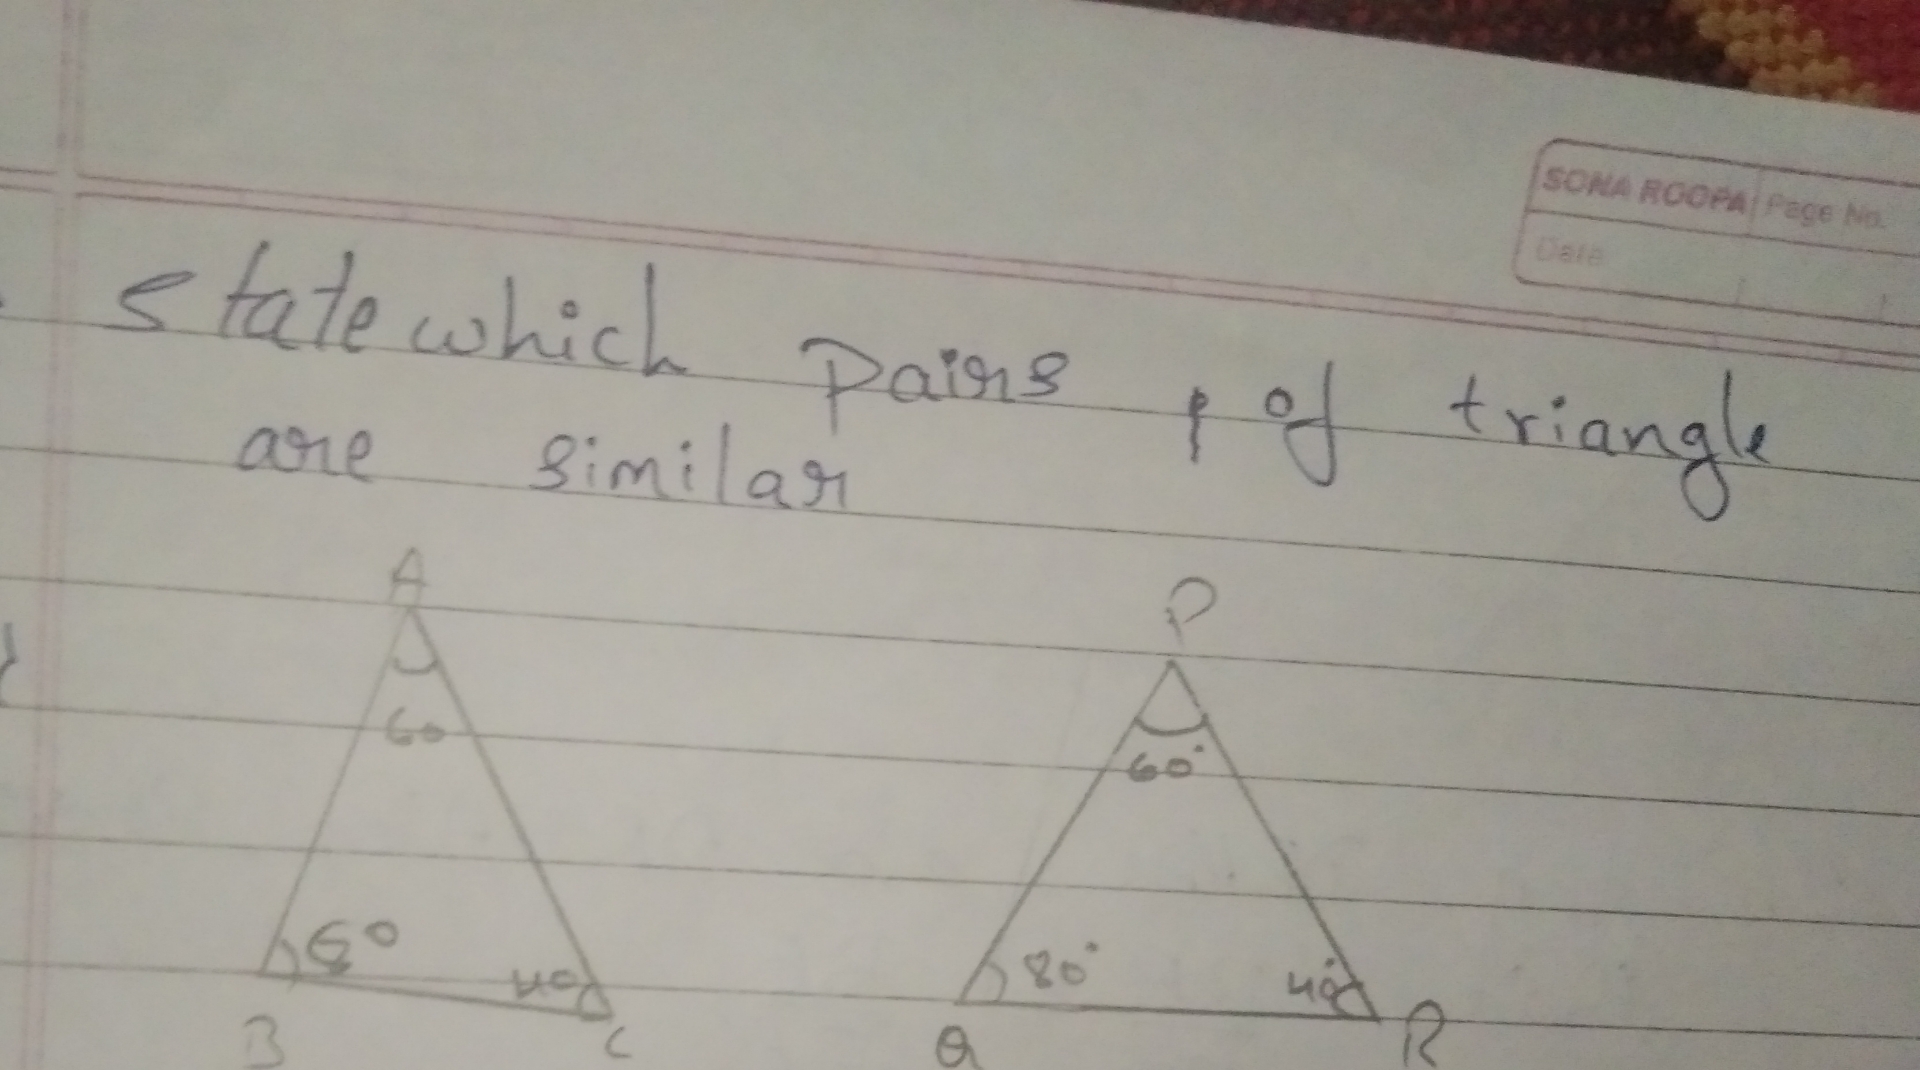 SONA ROOPA Page No.
Date
State which pairs , of triangle
are similar
A
P
60
60°
80
80°
40
40°
B
C
Q
R